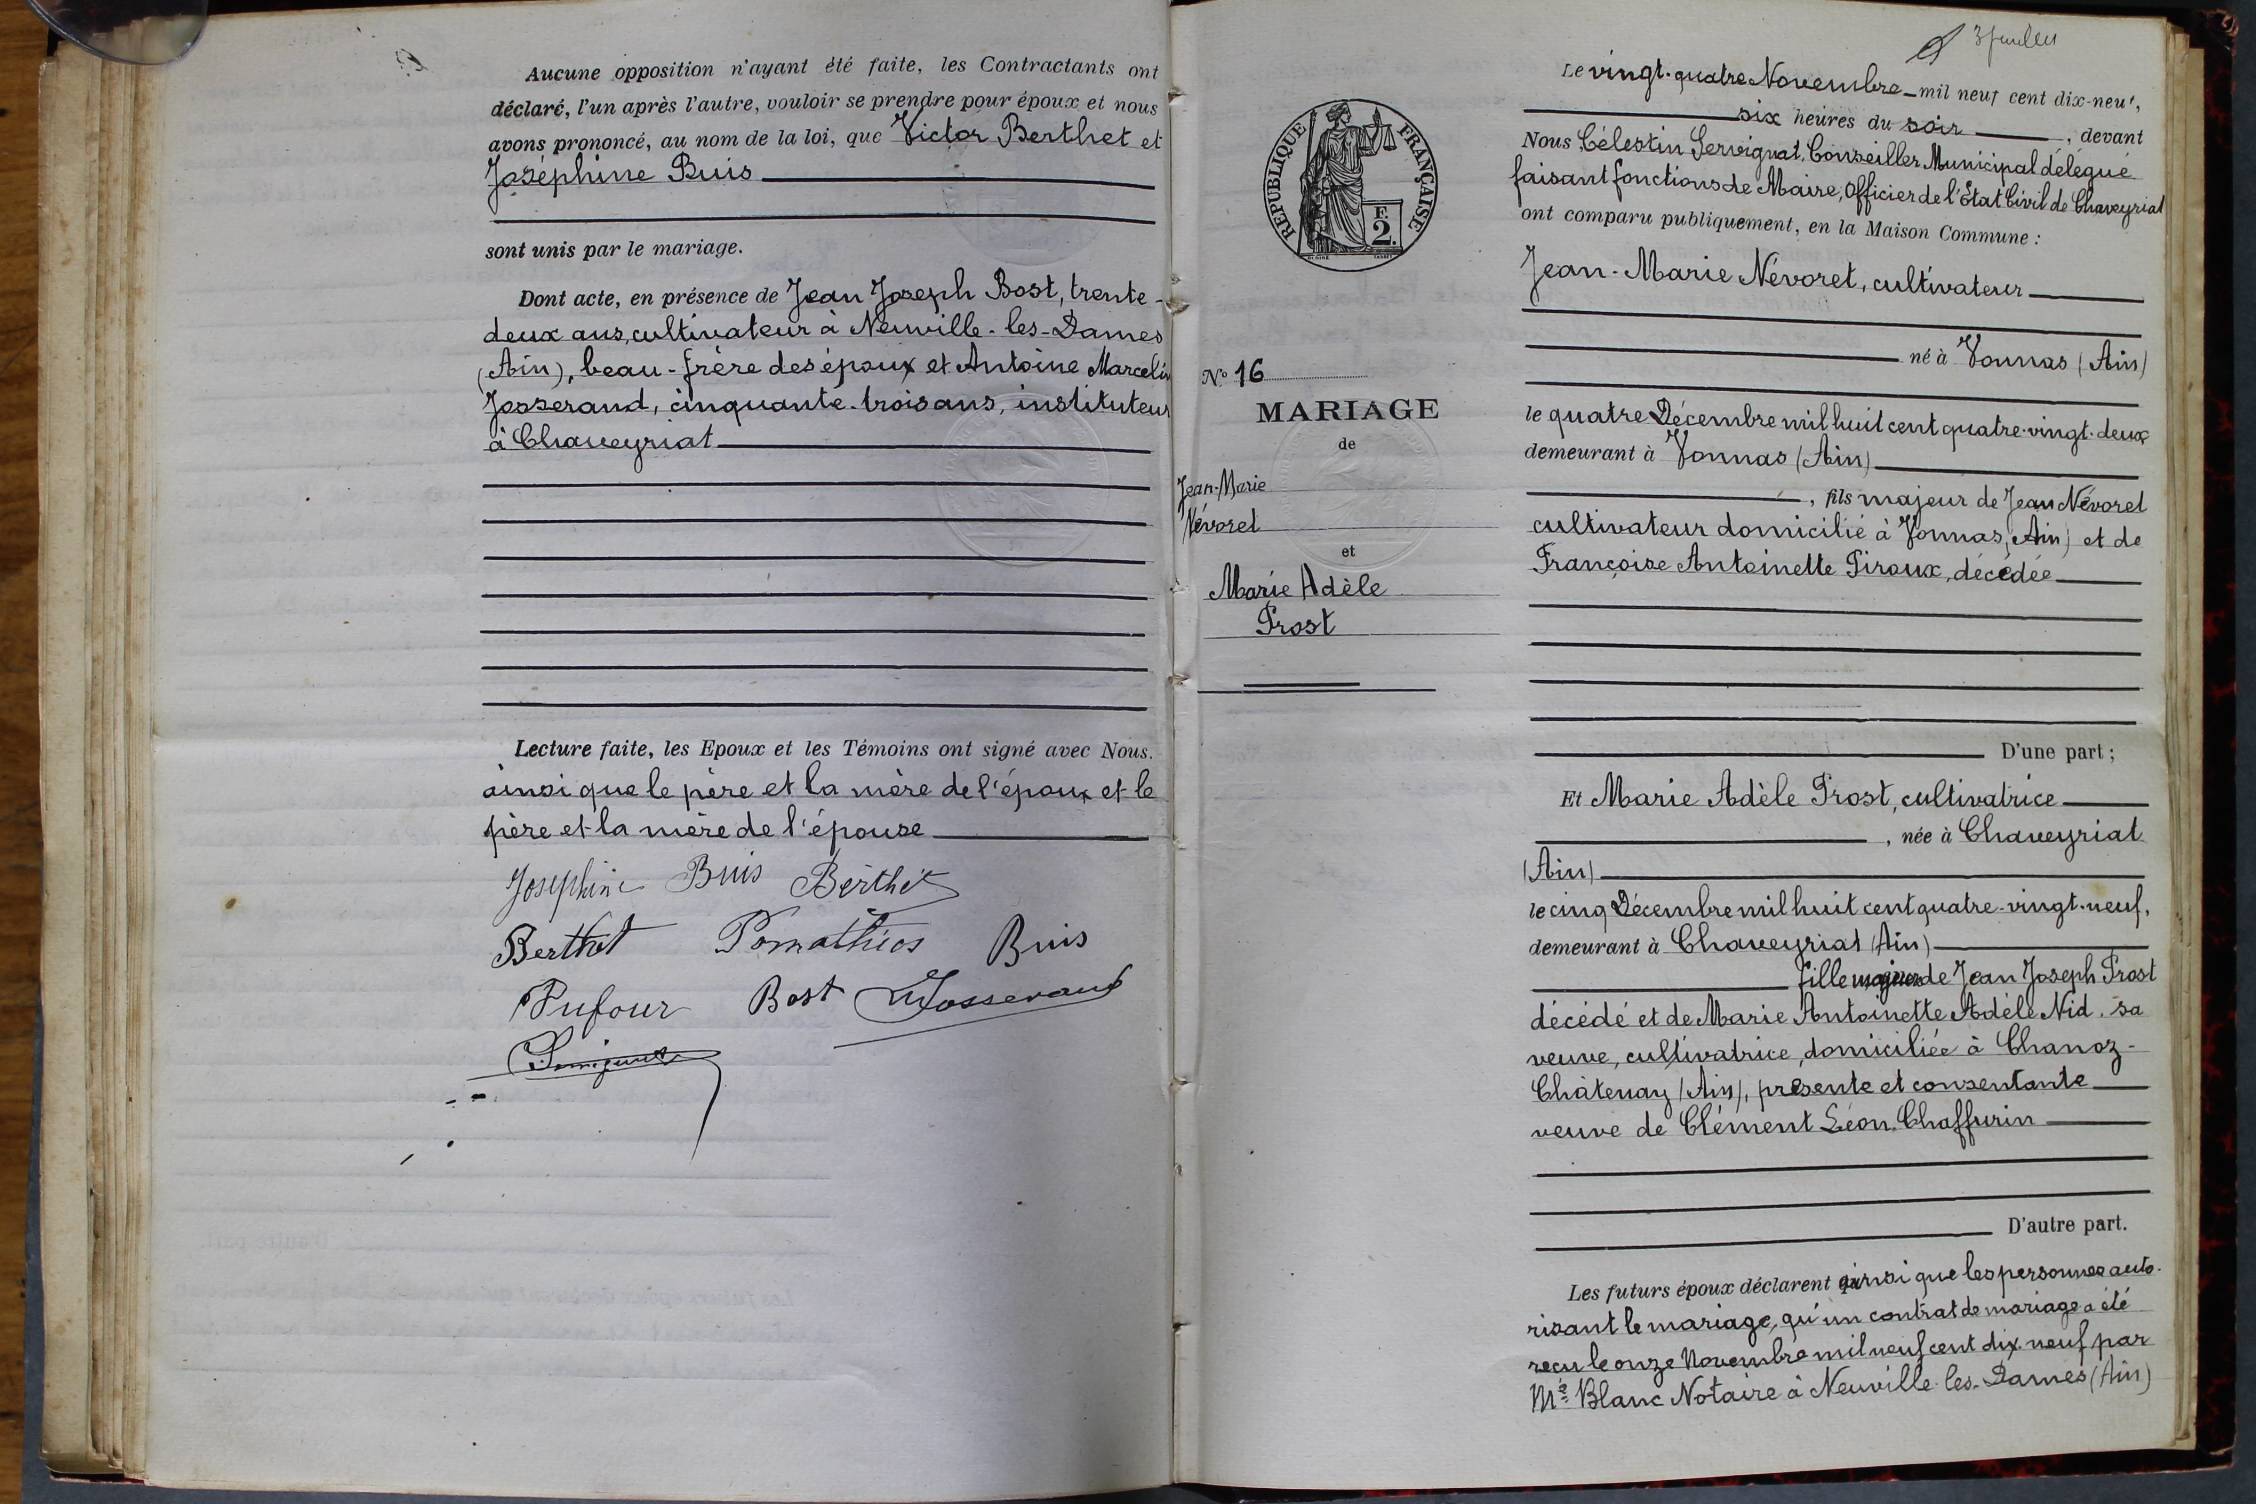 Aucune opposition n'ayant été faite, les Contractants ont
déclaré, l'un après l'autre, vouloir se prendre pour époux et nous
avons prononcé, au nom de la loi, que Victor Berthet et
Joséphine Buis
sont unis par le mariage.
Dont acte, en présence de Jean Joseph Bost, trente-
deux ans, cultivateur à Neuville-les-Dames
(Ain), beau-frère des époux et Antoine Marcelin
Josserand, cinquante-trois ans, instituteur
à Chaveyriat
Lecture faite, les Epoux et les Témoins ont signé avec Nous.
ainsi que le père et la mère de l'époux et le
père et la mère de l'épouse
Joséphine Buis Berthet
Berthet Pomathios Buis
Dufour Bost Josserand
3 feuillet
Le vingt-quatre Novembre mil neuf cent dix-neuf,
six heures du soir, devant
Nous Célestin Servignat, Conseiller Municipal délégué
faisant fonctions de Maire, Officier de l'État Civil de Chaveyriat
ont comparu publiquement, en la Maison Commune :
RÉPUBLIQUE FRANÇAISE
F.
2.
Jean-Marie Névoret, cultivateur
né à Vonnas (Ain)
N° 16
MARIAGE
de
Jean-Marie
Névoret
et
Marie Adèle
Prost
le quatre Décembre mil huit cent quatre-vingt-deux
demeurant à Vonnas (Ain)
, fils majeur de Jean Névoret
cultivateur domicilié à Vonnas (Ain) et de
Françoise Antoinette Piroux, décédée
D'une part ;
Et Marie Adèle Prost, cultivatrice
, née à Chaveyriat
(Ain)
le cinq Décembre mil huit cent quatre-vingt-neuf,
demeurant à Chaveyriat (Ain)
fille majeure de Jean Joseph Prost
décédé et de Marie Antoinette Adèle Nid, sa
veuve, cultivatrice, domiciliée à Chanoz-
Châtenay (Ain), présente et consentante
veuve de Clément Léon Chaffurin
D'autre part.
Les futurs époux déclarent ainsi que les personnes auto-
risant le mariage, qu'un contrat de mariage a été
reçu le onze Novembre mil neuf cent dix-neuf par
Me Blanc Notaire à Neuville-les-Dames (Ain)